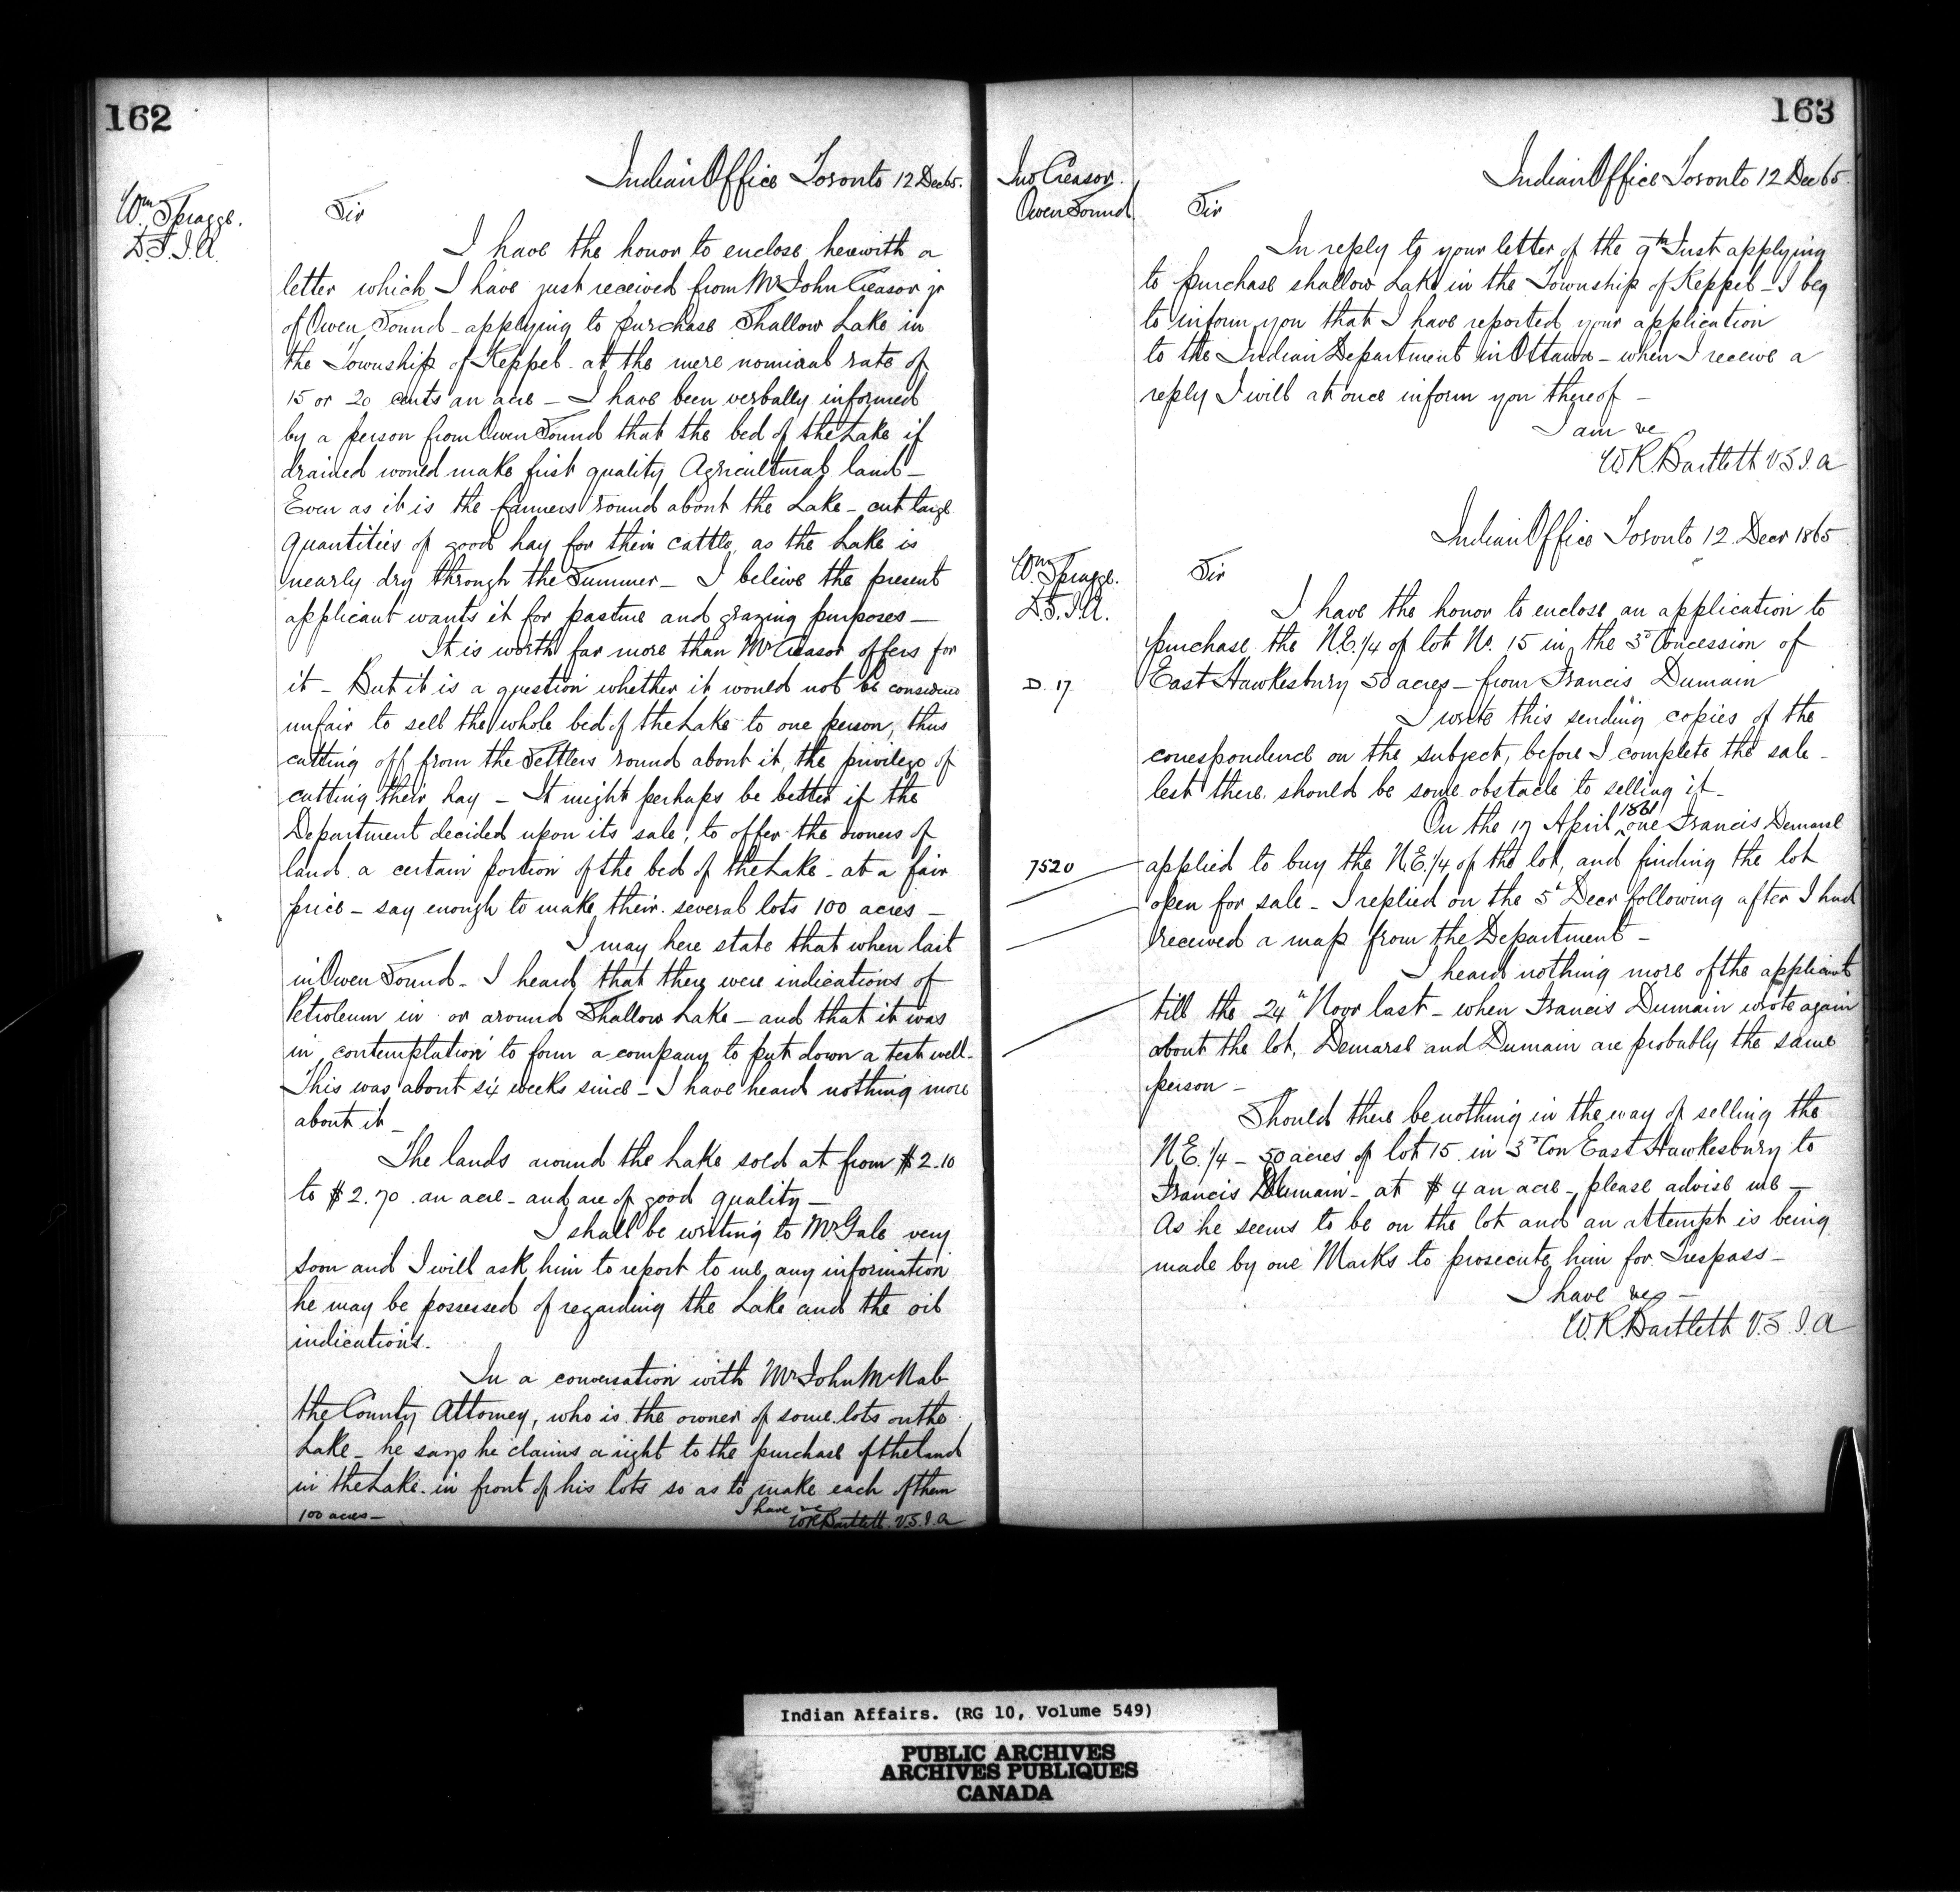 162
Indian Office Toronto 12 Dec 65.
Wm Spragge.
D.S.I.A.
Sir
I have the honor to enclose herewith a
letter which I have just received from Mr John Creasor jr
of Owen Sound - applying to purchase Shallow Lake in
the Township of Keppel. at the mere nominal rate of
15 or 20 cents an acre - I have been verbally informed
by a person from Owen Sound that the bed of the Lake if
drained would make first quality Agricultural land -
Even as it is the farmers round about the Lake - cut large
quantities of good hay for their cattle, as the Lake is
nearly dry through the Summer - I beleive the present
applicant wants it for pasture and grazing purposes -
It is worth far more than Mr Creasor offers for
it - But it is a question whether it would not be considered
unfair to sell the whole bed of the Lake to one person, thus
cutting off from the Settlers round about it, the privilege of
cutting their hay - It might perhaps be better if the
Department decided upon its sale, to offer the owners of
land a certain portion of the bed of the Lake - at a fair
price - say enough to make their several lots 100 acres -
I may here state that when last
in Owen Sound - I heard that there were indications of
Petroleum in or around Shallow Lake - and that it was
in contemplation to form a company to put down a test well -
This was about six weeks since - I have heard nothing more
about it -
The lands around the Lake sold at from $2.10
to $2.70 an acre - and are of good quality -
I shall be writing to Mr Gale very
soon and I will ask him to report to me any information
he may be possessed of regarding the Lake and the oil
indications.
In a conversation with Mr John McNab
the County Attorney, who is the owner of some lots on the
Lake - he says he claims a right to the purchase of the land
in the Lake in front of his lots so as to make each of them
100 acres -
I have &c
W.R. Bartlett. V.S.I.A
163
Indian Office Toronto 12 Dec 65.
Jno Creasor.
Owen Sound
Sir
In reply to your letter of the 9th Inst applying
to purchase shallow Lake in the Township of Keppel - I beg
to inform you that I have reported your application
to the Indian Department in Ottawa - when I receive a
reply I will at once inform you thereof -
I am &c
W.R. Bartlett V.S.I.A
Indian Office Toronto 12 Decr 1865
Wm Spragge.
D.S.I.A.
Sir
I have the honor to enclose an application to
purchase the N.E. 1/4 of lot No. 15 in the 3d Concession of
D. 17
East Hawkesbury 50 acres - from Francis Dumain
I write this sending copies of the
correspondence on the subject, before I complete the sale -
lest there should be some obstacle to selling it -
On the 17 April 1861 one Francis Demarse
7520
applied to buy the N.E. 1/4 of the lot, and finding the lot
open for sale - I replied on the 5th Decr following after I had
received a map from the Department -
I heard nothing more of the applicant
till the 24th Novr last - when Francis Dumain wrote again
about the lot, Demarse and Dumain are probably the same
person -
Should there be nothing in the way of selling the
N.E. 1/4 - 50 acres of lot 15 in 3d Con East Hawkesbury to
Francis Dumain - at $4 an acre - please advise me -
As he seems to be on the lot and an attempt is being
made by one Marks to prosecute him for Trespass -
I have &c -
W.R. Bartlett V.S.I.A
Indian Affairs. (RG 10, Volume 549)
PUBLIC ARCHIVES
ARCHIVES PUBLIQUES
CANADA